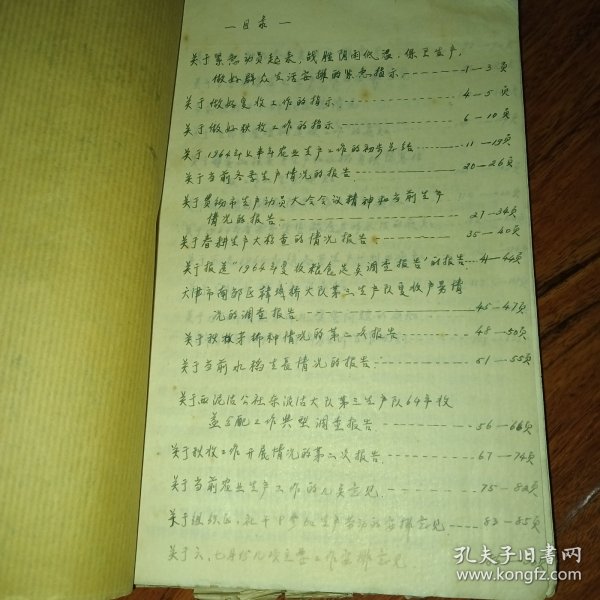 —目录—
关于紧急动员起来,战胜阴雨低温,保卫生产,
做好群众生活安排的紧急指示 1—3页
关于做好夏收工作的指示 4—5页
关于做好秋收工作的指示 6—10页
关于1964年上半年农业生产工作的初步总结 11—19页
关于当前冬季生产情况的报告 20—26页
关于贯彻市生产动员大会会议精神和当前生产
情况的报告 27—34页
关于春耕生产大检查的情况报告 35—40页
关于报送"1964年夏收粮食定产调查报告"的报告 41—44页
天津市南郊区 大队第三生产队夏收产量情
况的调查报告 45—47页
关于秋 种情况的第二次报告 48—50页
关于当前水稻生长情况的报告 51—55页
关于西泥沽公社东泥沽大队第三生产队64年收
益分配工作典型调查报告 56—66页
关于秋收工作开展情况的第二次报告 67—74页
关于当前农业生产工作的几点意见 75—82页
关于组织区、社干部参加生产劳动的安排意见 83—85页
关于六、七月份几项主要工作安排意见
孔夫子旧书网
www.kongfz.com